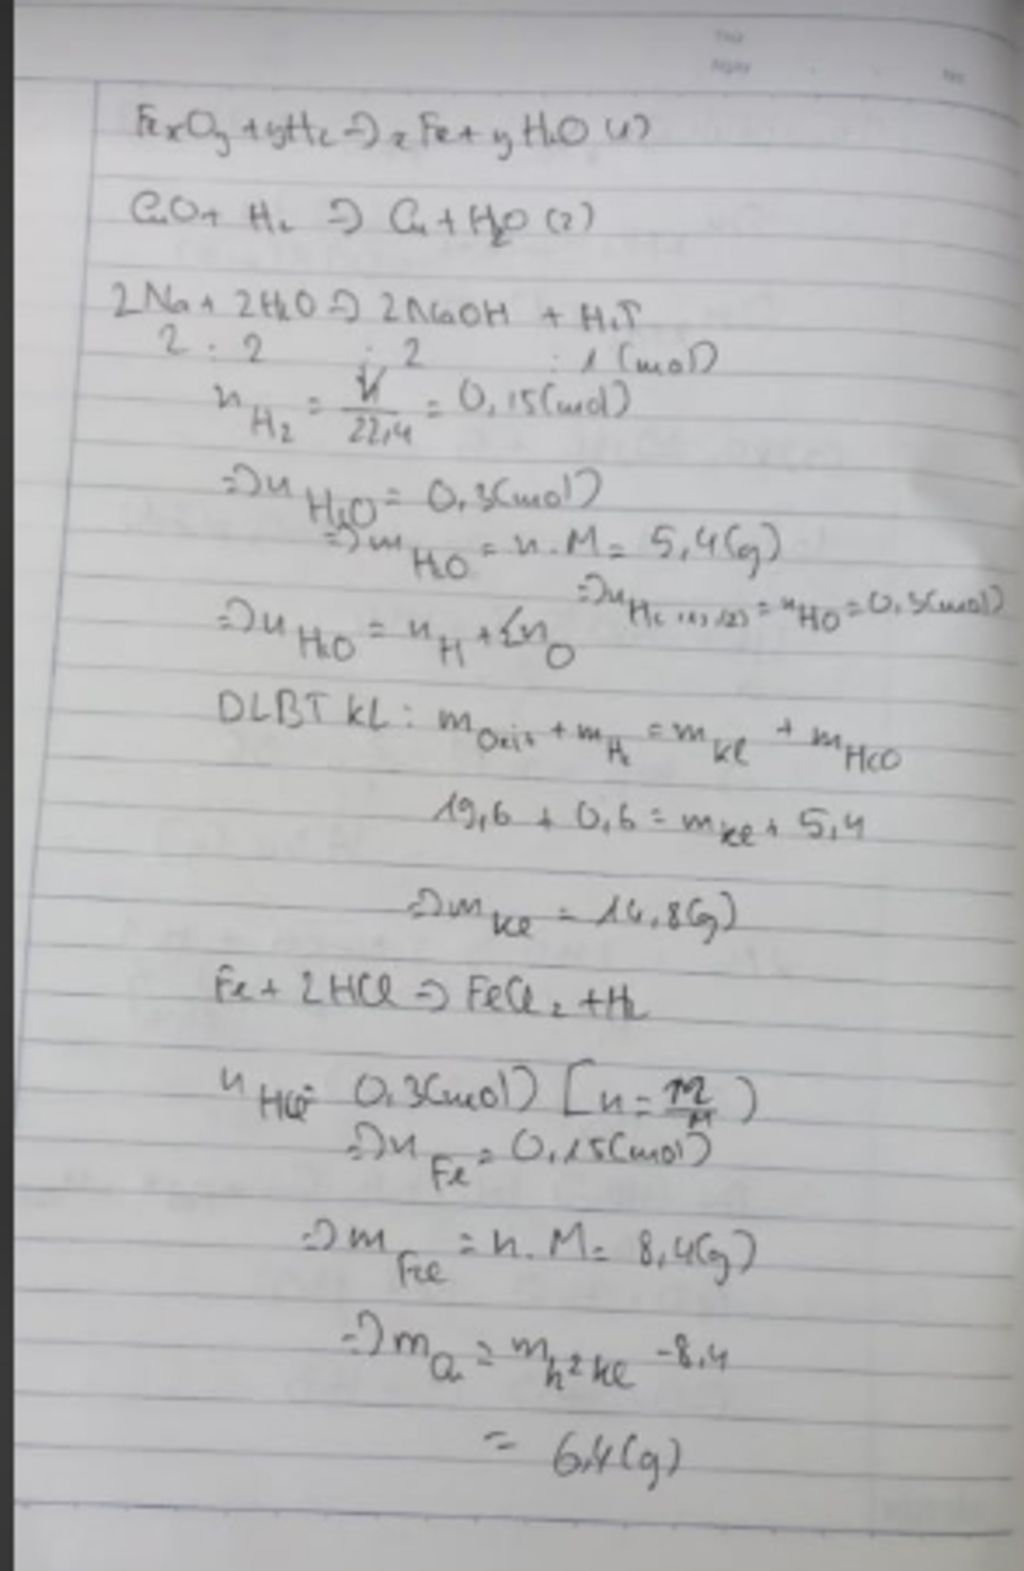 Thứ
Ngày No
FexOy + yH2 => xFe + yH2O (1)
CuO + H2 => Cu + H2O (2)
2Na + 2H2O => 2NaOH + H2↑
2 : 2 : 2 : 1 (mol)
nH2 = V/22,4 = 0,15(mol)
=> nH2O = 0,3(mol)
=> mH2O = n.M = 5,4(g)
=> nH2 (1),(2) = nH2O = 0,3(mol)
=> nH2O = nH + Σ nO
DLBT KL: mOxit + mH2 = mKl + mH2O
19,6 + 0,6 = mKl + 5,4
=> mKl = 14,8(g)
Fe + 2HCl => FeCl2 + H2
nHCl = 0,3(mol) [n = m/M)
=> nFe = 0,15(mol)
=> mFe = n.M = 8,4(g)
=> mCu = mh²kl - 8,4
= 6,4(g)